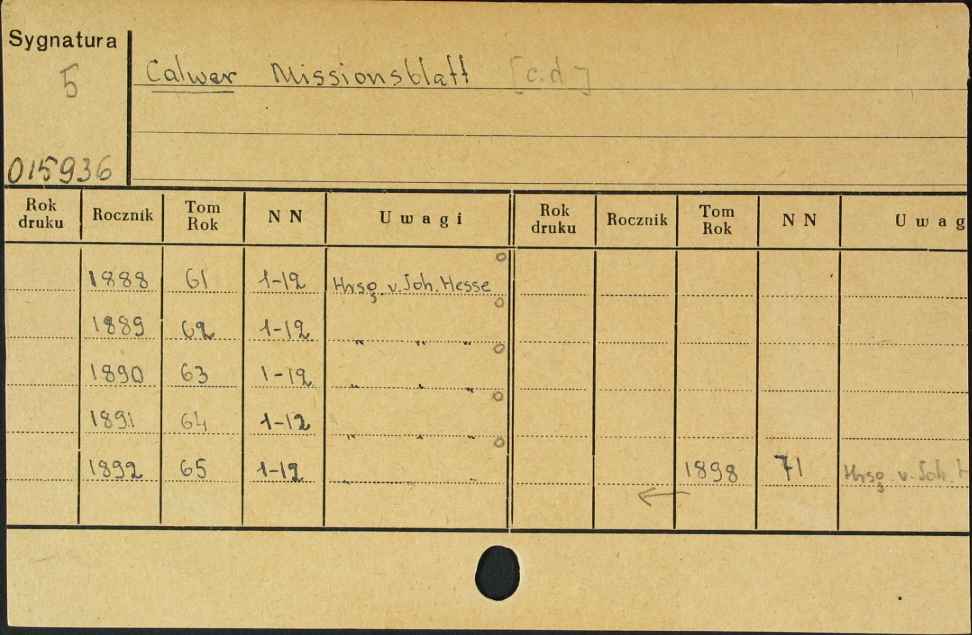 Sygnatura
5
Calwer Missionsblatt [c.d]
015936
Rok druku Rocznik Tom Rok N N Uwagi Rok druku Rocznik Tom Rok N N Uwag
1888 61 1-12 Hrsg. v. Joh. Hesse
1889 62 1-12 " " "
1890 63 1-12 " " "
1891 64 1-12 " " "
1892 65 1-12 1898 71 Hrsg. v. Joh. H